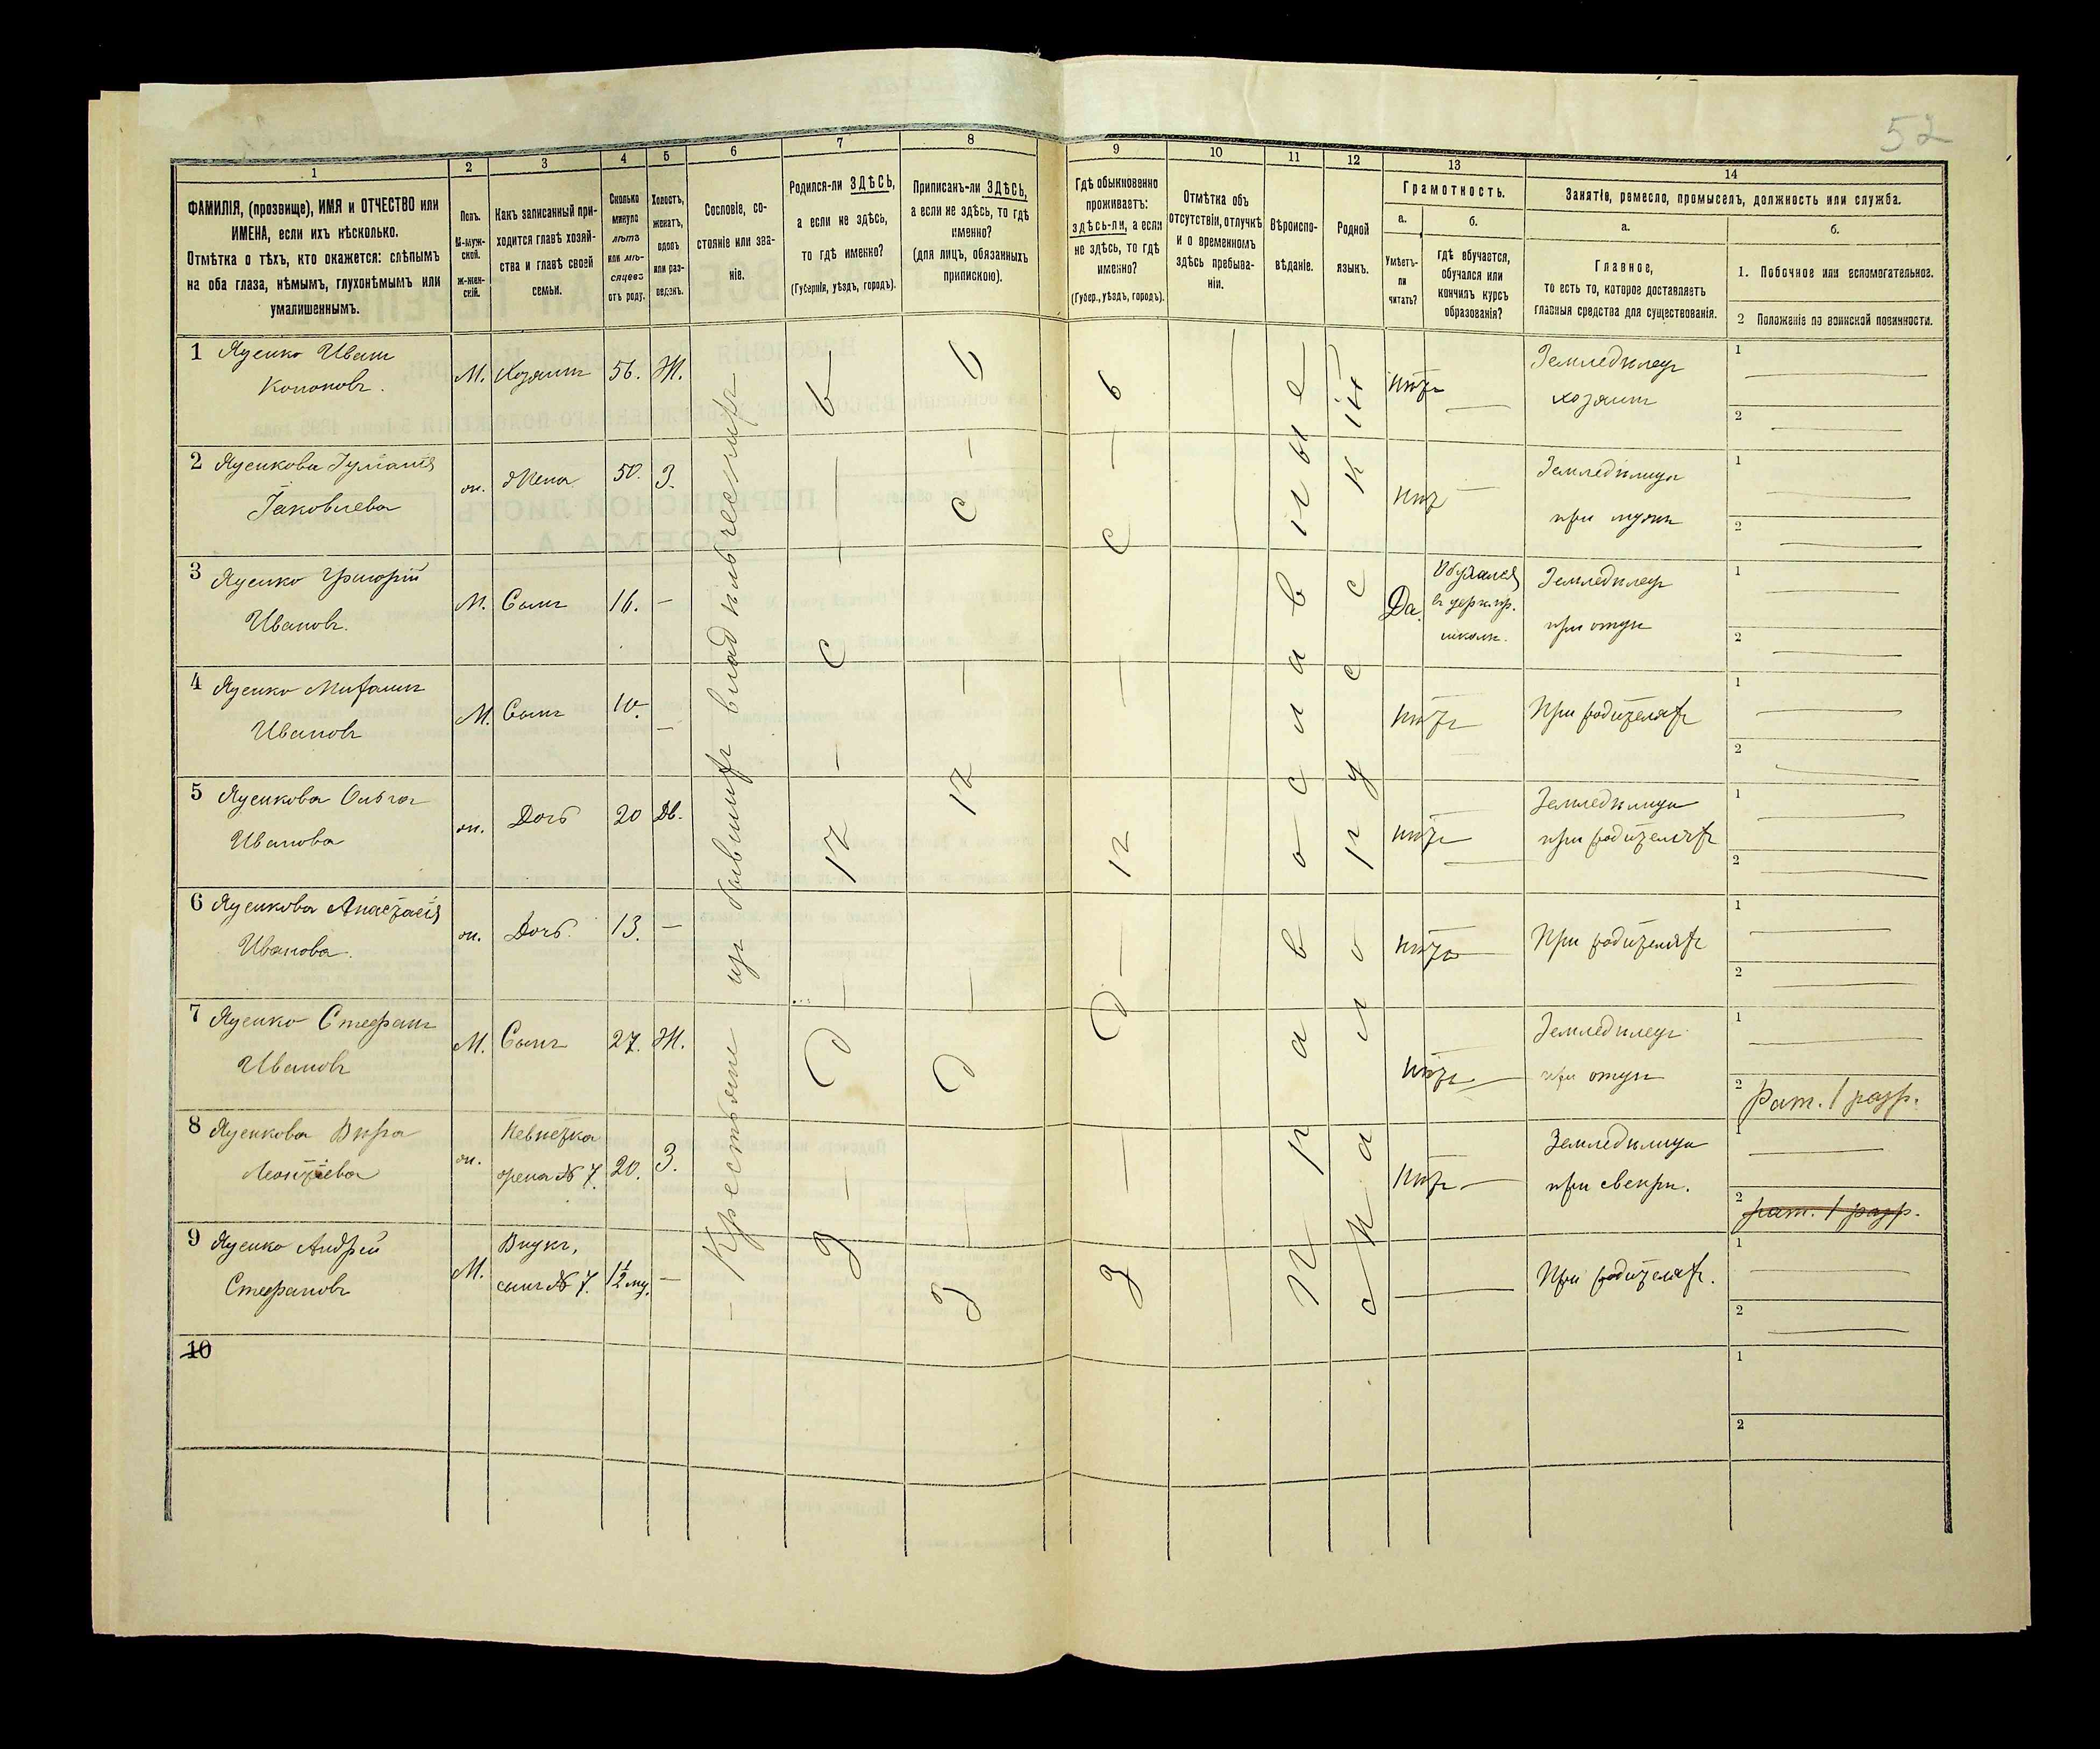 52
1
2
3
4
5
6
7
8
9
10
11
12
13
14
ФАМИЛІЯ, (прозвище), ИМЯ и ОТЧЕСТВО или
ИМЕНА, если ихъ нѣсколько.
Отмѣтка о тѣхъ, кто окажется: слѣпымъ
на оба глаза, нѣмымъ, глухонѣмымъ или
умалишеннымъ.
Полъ.
М-муж-
ской.
Ж-жен-
скій.
Какъ записанный при-
ходится главѣ хозяй-
ства и главѣ своей
семьи.
Сколько
минуло
лѣтъ
или мѣ-
сяцевъ
отъ роду.
Холостъ,
женатъ,
вдовъ
или раз-
веденъ.
Сословіе, со-
стояніе или зва-
ніе.
Родился-ли ЗДѢСЬ,
а если не здѣсь,
то гдѣ именно?
(Губернія, уѣздъ, городъ).
Приписанъ-ли ЗДѢСЬ,
а если не здѣсь, то гдѣ
именно?
(для лицъ, обязанныхъ
припискою).
Гдѣ обыкновенно
проживаетъ:
здѣсь-ли, а если
не здѣсь, то гдѣ
именно?
(Губер., уѣздъ, городъ).
Отмѣтка объ
отсутствіи, отлучкѣ
и о временномъ
здѣсь пребыва-
ніи.
Вѣроиспо-
вѣданіе.
Родной
языкъ.
Грамотность.
а.
б.
Умѣетъ-
ли
читать?
гдѣ обучается,
обучался или
кончилъ курсъ
образованія?
Занятіе, ремесло, промыселъ, должность или служба.
а.
б.
Главное,
то есть то, которое доставляетъ
главныя средства для существованія.
1. Побочное или вспомогательное.
2 Положеніе по воинской повинности.
Крестьяне изъ бывшихъ владѣльческихъ
здѣсь
здѣсь
здѣсь
Православные
Малорусскій
1 Яценко Иванъ
Кононовъ.
М. Хозяинъ 56. Ж.
нѣтъ
Земледѣлецъ
хозяинъ
1
2
2 Яценкова
Яковлева
ж. Жена 50. З.
нѣтъ
Земледѣлица
при мужѣ
1
2
3 Яценко Григорій
Ивановъ.
М. Сынъ 16. —
Да.
Обучался
въ церк. пр.
школѣ.
Земледѣлецъ
при отцѣ
1
2
4 Яценко Митрофанъ
Ивановъ
М. Сынъ 10. —
нѣтъ
При родителяхъ
1
2
5 Яценкова Ольга
Иванова
ж. Дочь 20 Дѣ.
нѣтъ
Земледѣлица
при родителяхъ
1
2
6 Яценкова Анастасія
Иванова.
ж. Дочь 13. —
нѣтъ
При родителяхъ
1
2
7 Яценко Стефанъ
Ивановъ
М. Сынъ 27. Ж.
нѣтъ
Земледѣлецъ
при отцѣ
1
2 Рат. 1 разр.
8 Яценкова Вѣра
Леонтіева
ж. Невѣстка
жена № 7. 20. З.
нѣтъ
Земледѣлица
при свекрѣ.
1
2 рат. 1 разр.
9 Яценко Андрей
Стефановъ
М. Внукъ,
сынъ № 7. 1½ —
При родителяхъ.
1
2
10
1
2